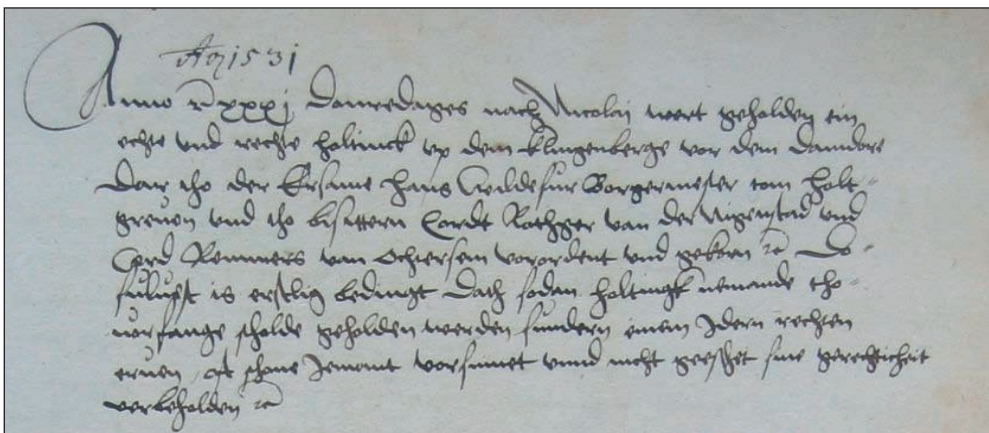 Ao 1531
Anno xxxj Donredages nach Nicolaj wert geholden ein
echte vnd rechte holtinck vp dem Klingenberge vor dem Damdore
Dar tho der Ersame Hans Wildefur Borgermester tom holt-
greuen vnd tho bisittern Cordt Rathger van der Nigenstad vnd
Cord Remmers van Ochtersem vorordent vnd gekorn
is erstlig bedingt Dath sodan holtingk nemande tho-
vorfange scholde geholden werden sundern einem Idern rechten
eruen, Jemant vorsumet vnnd nicht geeschet sine gerechticheit
vorbeholden